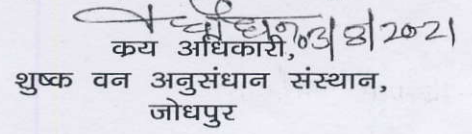 03/8/2021
क्रय अधिकारी,
शुष्क वन अनुसंधान संस्थान,
जोधपुर